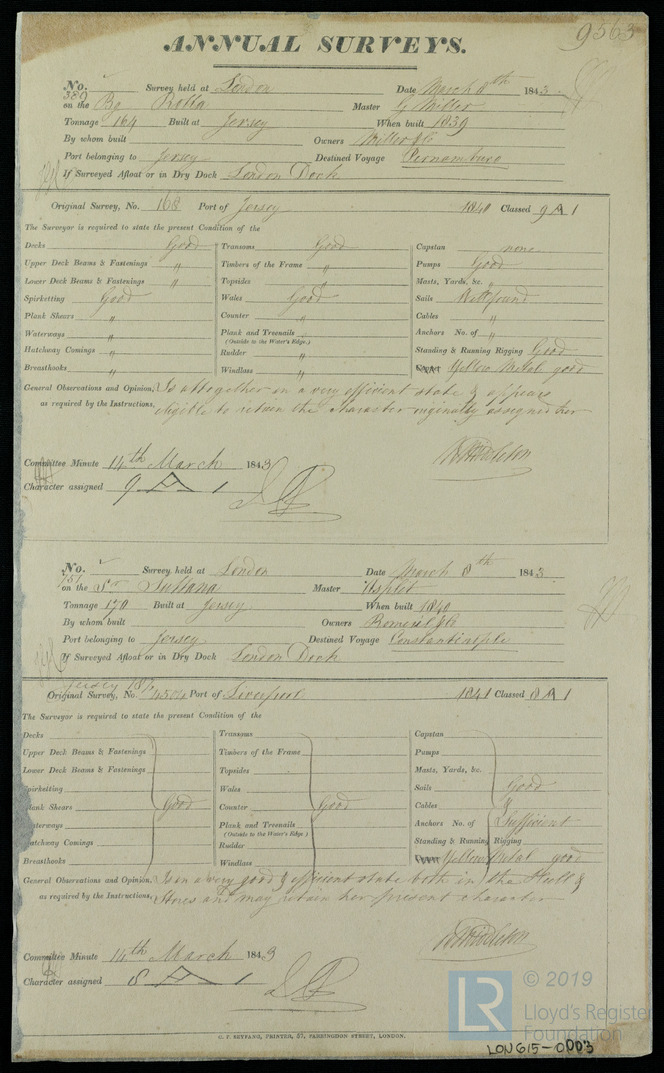 9563
ANNUAL SURVEYS.
No. 380 Survey held at London Date March 8th 1843
on the Bg Rolla Master G Miller
Tonnage 164 Built at Jersey When built 1839
By whom built Owners Miller & Co
Port belonging to Jersey Destined Voyage Pernambuco
If Surveyed Afloat or in Dry Dock London Dock
Original Survey, No. 168 Port of Jersey 1840 Classed 9 A 1
The Surveyor is required to state the present Condition of the
Decks Good Transoms Good Capstan none
Upper Deck Beams & Fastenings " Timbers of the Frame " Pumps Good
Lower Deck Beams & Fastenings " Topsides " Masts, Yards, &c. "
Spirketting Good Wales Good Sails Well found
Plank Shears " Counter " Cables "
Waterways " Plank and Treenails " Anchors No. of "
(Outside to the Water's Edge.)
Hatchway Comings " Rudder " Standing & Running Rigging Good
Breasthooks " Windlass " Yellow Metal good
General Observations and Opinion, Is altogether in a very efficient state & appears
as required by the Instructions, eligible to retain the character originally assigned her
W Middleton
Committee Minute 14th March 1843
Character assigned 9 A 1
No. 751 Survey held at London Date March 8th 1843
on the Sr Sultana Master Asplet
Tonnage 170 Built at Jersey When built 1840
By whom built Owners Romeril & Co
Port belonging to Jersey Destined Voyage Constantinople
If Surveyed Afloat or in Dry Dock London Dock
Original Survey, No. 4504 Port of Liverpool 1841 Classed 8 A 1
The Surveyor is required to state the present Condition of the
Decks Transoms Capstan
Upper Deck Beams & Fastenings Timbers of the Frame Pumps
Lower Deck Beams & Fastenings Topsides Masts, Yards, &c.
Spirketting Wales Sails Good
Plank Shears Good Counter Good Cables &
Waterways Plank and Treenails Anchors No. of Sufficient
(Outside to the Water's Edge.)
Hatchway Comings Rudder Standing & Running Rigging
Breasthooks Windlass Yellow Metal good
General Observations and Opinion, Is in a very good & efficient state both in the Hull &
as required by the Instructions, Stores and may retain her present character
W Middleton
Committee Minute 14th March 1843
Character assigned 8 A 1
C. F. SEYFANG, PRINTER, 57, FARRINGDON STREET, LONDON.
LR © 2019
Lloyd's Register
Foundation
LON615-0003